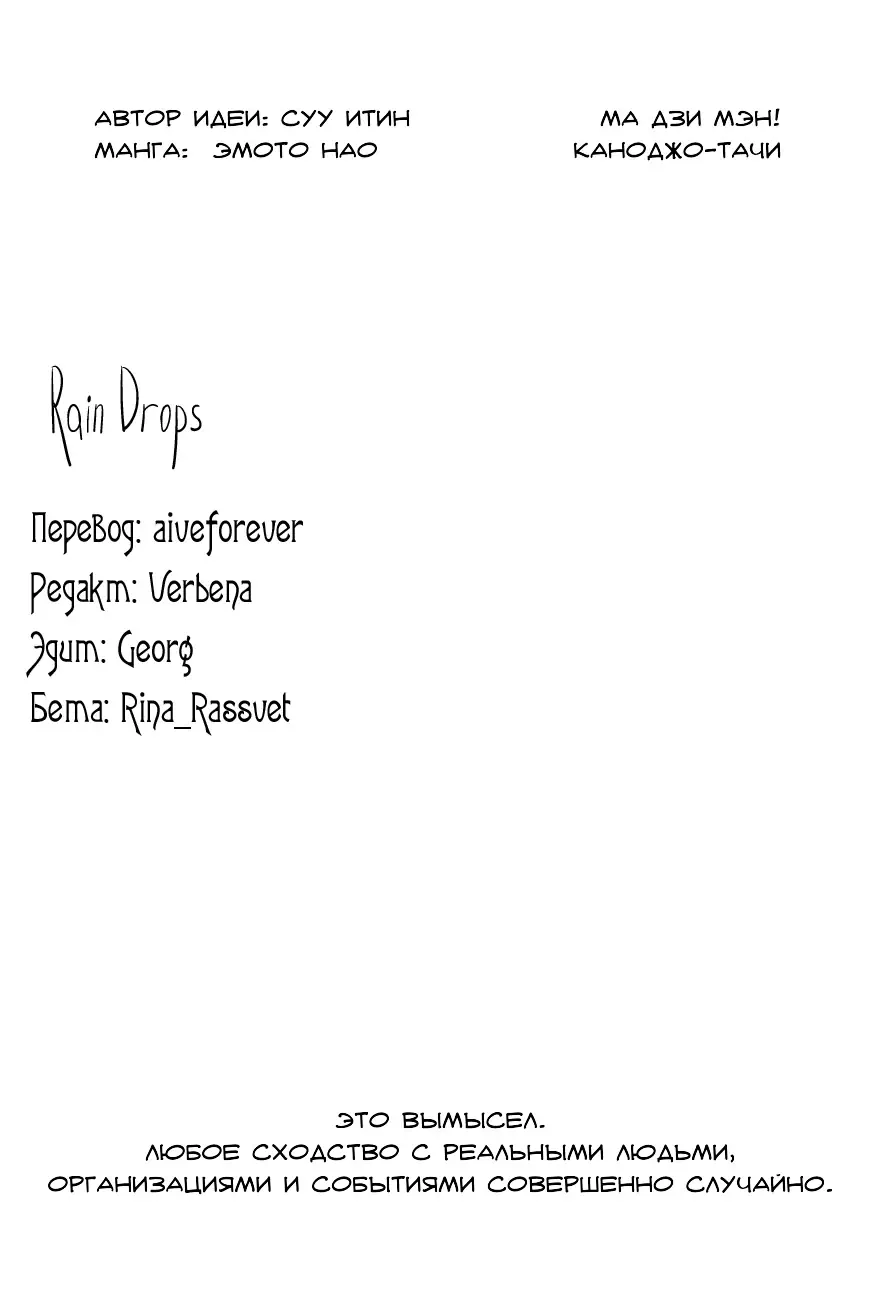 АВТОР ИДЕИ: СУУ ИТИН
МАНГА: ЭМОТО НАО
МА ДЗИ МЭН!
КАНОДЖО-ТАЧИ
Rain Drops
Перевод: aiveforever
Редакт: Verbena
Эдит: Georg
Бета: Rina_Rassvet
ЭТО ВЫМЫСЕЛ.
ЛЮБОЕ СХОДСТВО С РЕАЛЬНЫМИ ЛЮДЬМИ,
ОРГАНИЗАЦИЯМИ И СОБЫТИЯМИ СОВЕРШЕННО СЛУЧАЙНО.